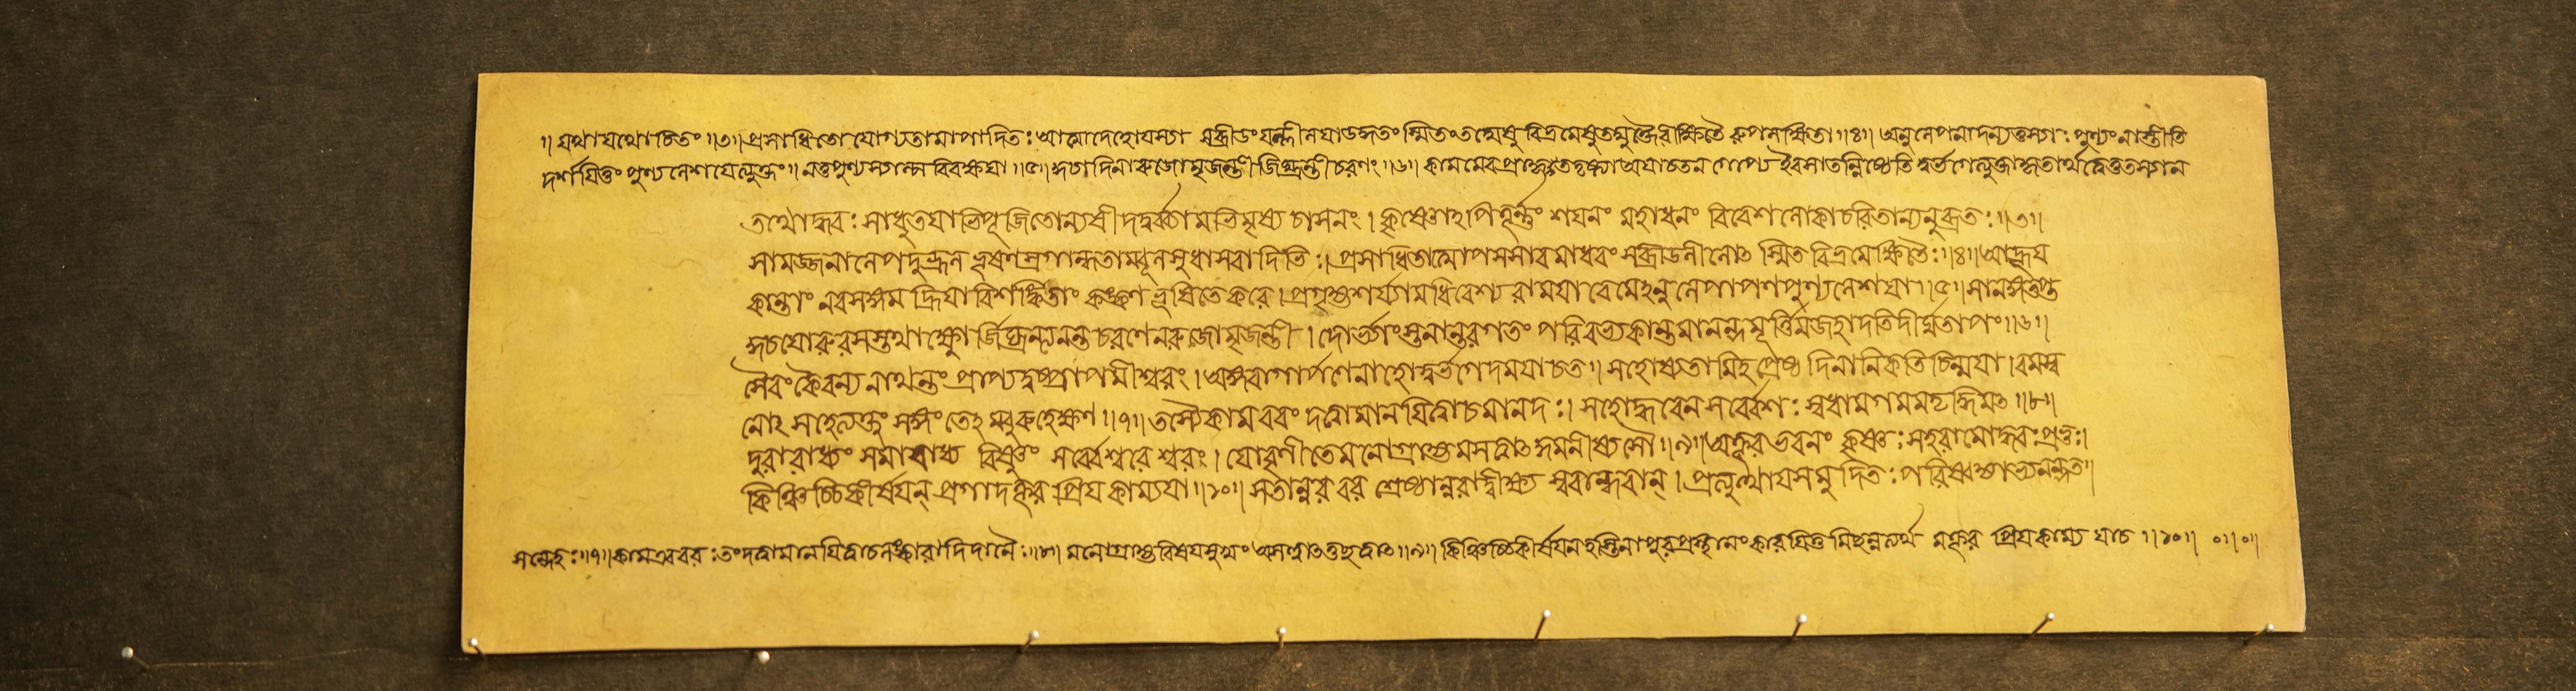 ॥ যথা যথোচিতং ॥৩॥ প্রসাধিতো যোগ্যতামাপাদিতঃ আত্মাদেহোযস্যা সব্রীডং স্মিতং ॥৪॥ অনুলেপনাদন্যত্তস্যাঃ পুণ্যং নাস্তীতি
দর্শযিতুং পুণ্যলেশযেত্যুক্তং ॥ নতুপুণ্যস্যাল্পত্ববিবক্ষযা ॥৫॥
তথোদ্ধবঃ সাধুতযাভিপূজিতোন্যষীদদুর্ব্ব্যামভিমৃষ্য চাসনং । কৃষ্ণোঽপিতূর্ণং শযনং মহাধনং বিবেশলোকাচরিতান্যনুব্রতঃ ॥৩॥
সামজ্জনালেপদুকূলভূষণস্রগ্গন্ধতাম্বূলসুধাসবাদিভিঃ । প্রসাধিতাত্মোপসসারমাধবং সব্রীডলীলোৎস্মিতবিভ্রমেক্ষিতৈঃ ॥৪॥ আহূয
কান্তাং নবসঙ্গমহ্রিযাবিশঙ্কিতাং কঙ্কণভূষিতেকরে । প্রগৃহ্যশয্যামধিবেশ্যরামযারেমেঽনুলেপার্পণপুণ্যলেশযা ॥৫॥ সানঙ্গতপ্ত
কুচযোরুরসস্তথাক্ষ্ণোর্জিঘ্রন্ত্যনন্তচরণেনরুজোমৃজন্তী । দোর্ভ্যাংস্তনান্তরগতং পরিরভ্যকান্তমানন্দমূর্ত্তিমজহাদতিদীর্ঘতাপং ॥৬॥
সৈবংকৈবল্যনাথন্তং প্রাপ্যদুষ্প্রাপমীশ্বরং । অঙ্গরাগার্পণেনাহোদুর্ভগেদমযাচত ॥ সহোষ্যতামিহপ্রেষ্ঠ দিনানিকতিচিন্মযা । রমস্ব
নোৎসহেত্যক্তুং সঙ্গংতেঽম্বুরুহেক্ষণ ॥৭॥ তস্যৈকামবরং দত্ত্বামানযিত্বাচমানদঃ । সহোদ্ধবেন সর্ব্বেশঃ স্বধামগমমদৃদ্ধিমৎ ॥৮॥
দুরারাধ্যং সমারাধ্য বিষ্ণুং সর্ব্বেশ্বরেশ্বরং । যোবৃণীতেমনোগ্রাহ্যমসত্ত্বাৎকুমনীষ্যসৌ ॥৯॥ অক্রূরভবনং কৃষ্ণঃ সহরামোদ্ধবঃ প্রভুঃ ।
কিঞ্চিচ্চিকীর্ষযন্ প্রাগাদক্রূরপ্রিযকাম্যযা ॥১০॥ সতান্নরবরশ্রেষ্ঠান্নারাদ্বীক্ষ্য স্ববান্ধবান্ । প্রত্যুত্থাযসমুদিতঃ পরিষ্বজ্যাভ্যনন্দত ॥
সন্দেহঃ ॥৭॥ কামএববরঃ তংদত্ত্বামানযিত্বাচালঙ্কারাদিদানৈঃ ॥৮॥ মনোগ্রাহ্যবিষযসুখং অসত্ত্বাৎতুচ্ছত্বাৎ ॥৯॥ কিঞ্চিচ্চিকীর্ষযন্হস্তিনাপুরপ্রস্থানংকারযিতুমিচ্ছন্ ॥১০॥